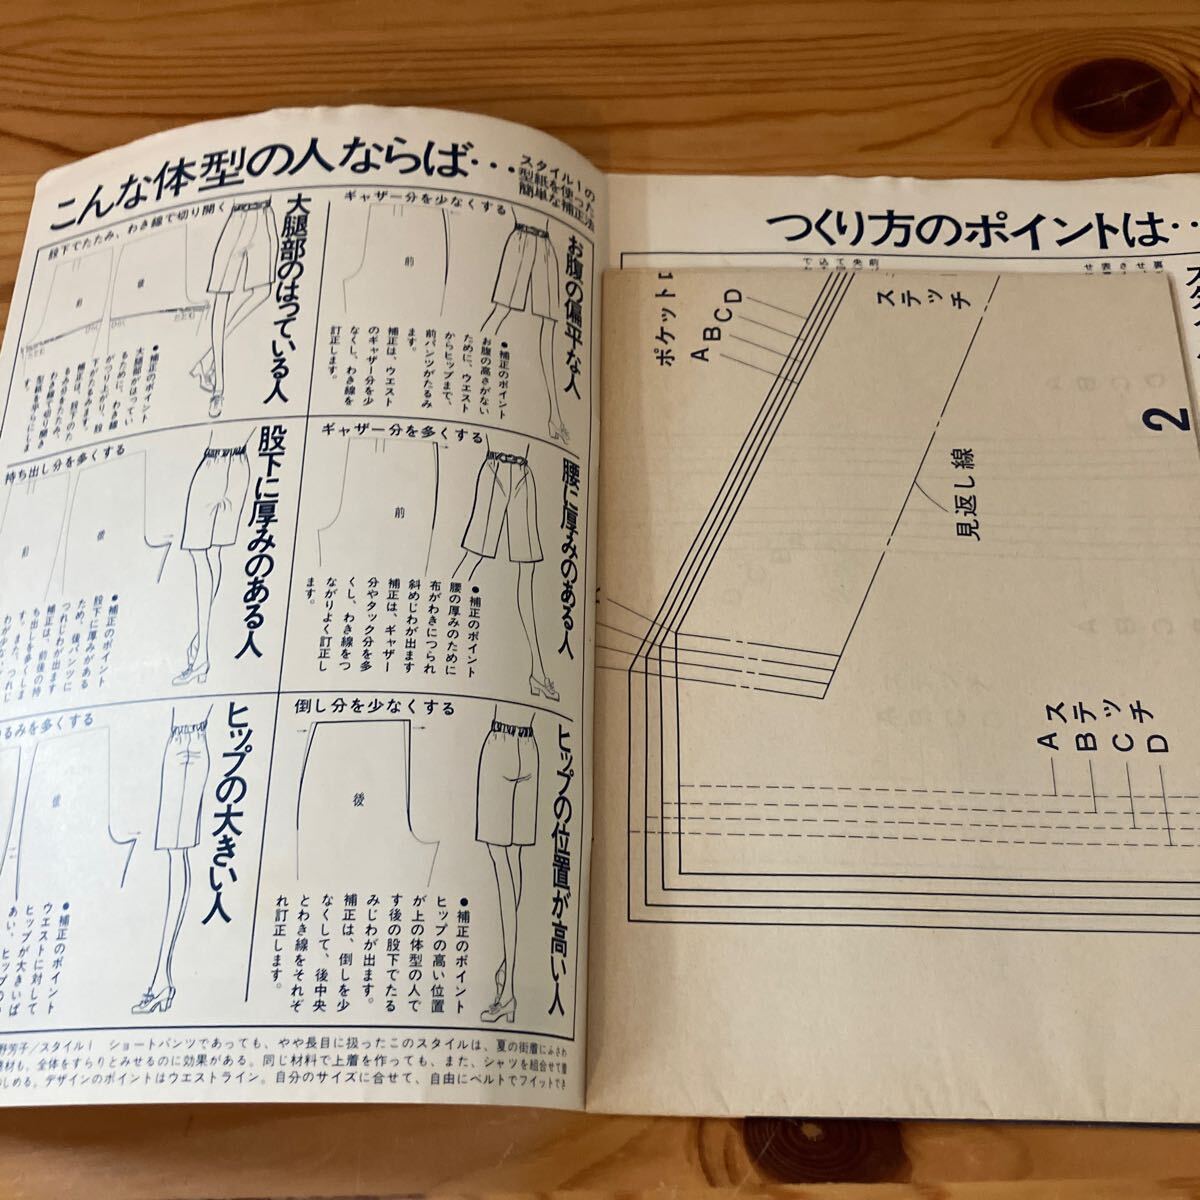 こんな体型の人ならば…
スタイルⅠの
型紙を使った
簡単な補正法
お腹の偏平な人
ギャザー分を少なくする
前
●補正のポイント
お腹の高さがない
ために、ウエスト
からヒップまで、
前パンツがたるみ
ます。
補正は、ウエスト
のギャザー分を少
なくし、わき線を
訂正します。
大腿部のはっている人
股下でたたみ、わき線で切り開く
前
後
●補正のポイント
大腿部がはってい
るために、わき線
がつり上がり、股
下がたるみます。
補正は、股下のた
るみ分をたたみ、
わき線で切り開き
型紙を平らにしま
す。
腰に厚みのある人
ギャザー分を多くする
前
●補正のポイント
腰の厚みのために
布がわきにつられ
斜めじわが出ます
補正は、ギャザー
分やタック分を多
くし、わき線をつ
ながりよく訂正し
ます。
股下に厚みのある人
持ち出し分を多くする
前
後
●補正のポイント
股下に厚みがある
ため、後パンツに
つれじわが出ます
補正は、前後の持
ち出しを多くしま
す。また、つれじ
わが少ない
ヒップの位置が高い人
倒し分を少なくする
後
●補正のポイント
ヒップの高い位置
が上の体型の人で
す後の股下でたる
みじわが出ます。
補正は、倒しを少
なくして、後中央
とわき線をそれぞ
れ訂正します。
ヒップの大きい人
るみを多くする
後
●補正のポイント
ウエストに対して
ヒップが大きいば
あい、ヒップの
野芳子/スタイルⅠ ショートパンツであっても、やや長目に扱ったこのスタイルは、夏の街着にふさわ
材も、全体をすらりとみせるのに効果がある。同じ材料で上着を作っても、また、シャツを組合せて着
しめる。デザインのポイントはウエストライン。自分のサイズに合せて、自由にベルトでフィットでき
つくり方のポイントは…
ポケット口
A B C D
ステッチ
2
見返し線
ステッチ
A
B
C
D